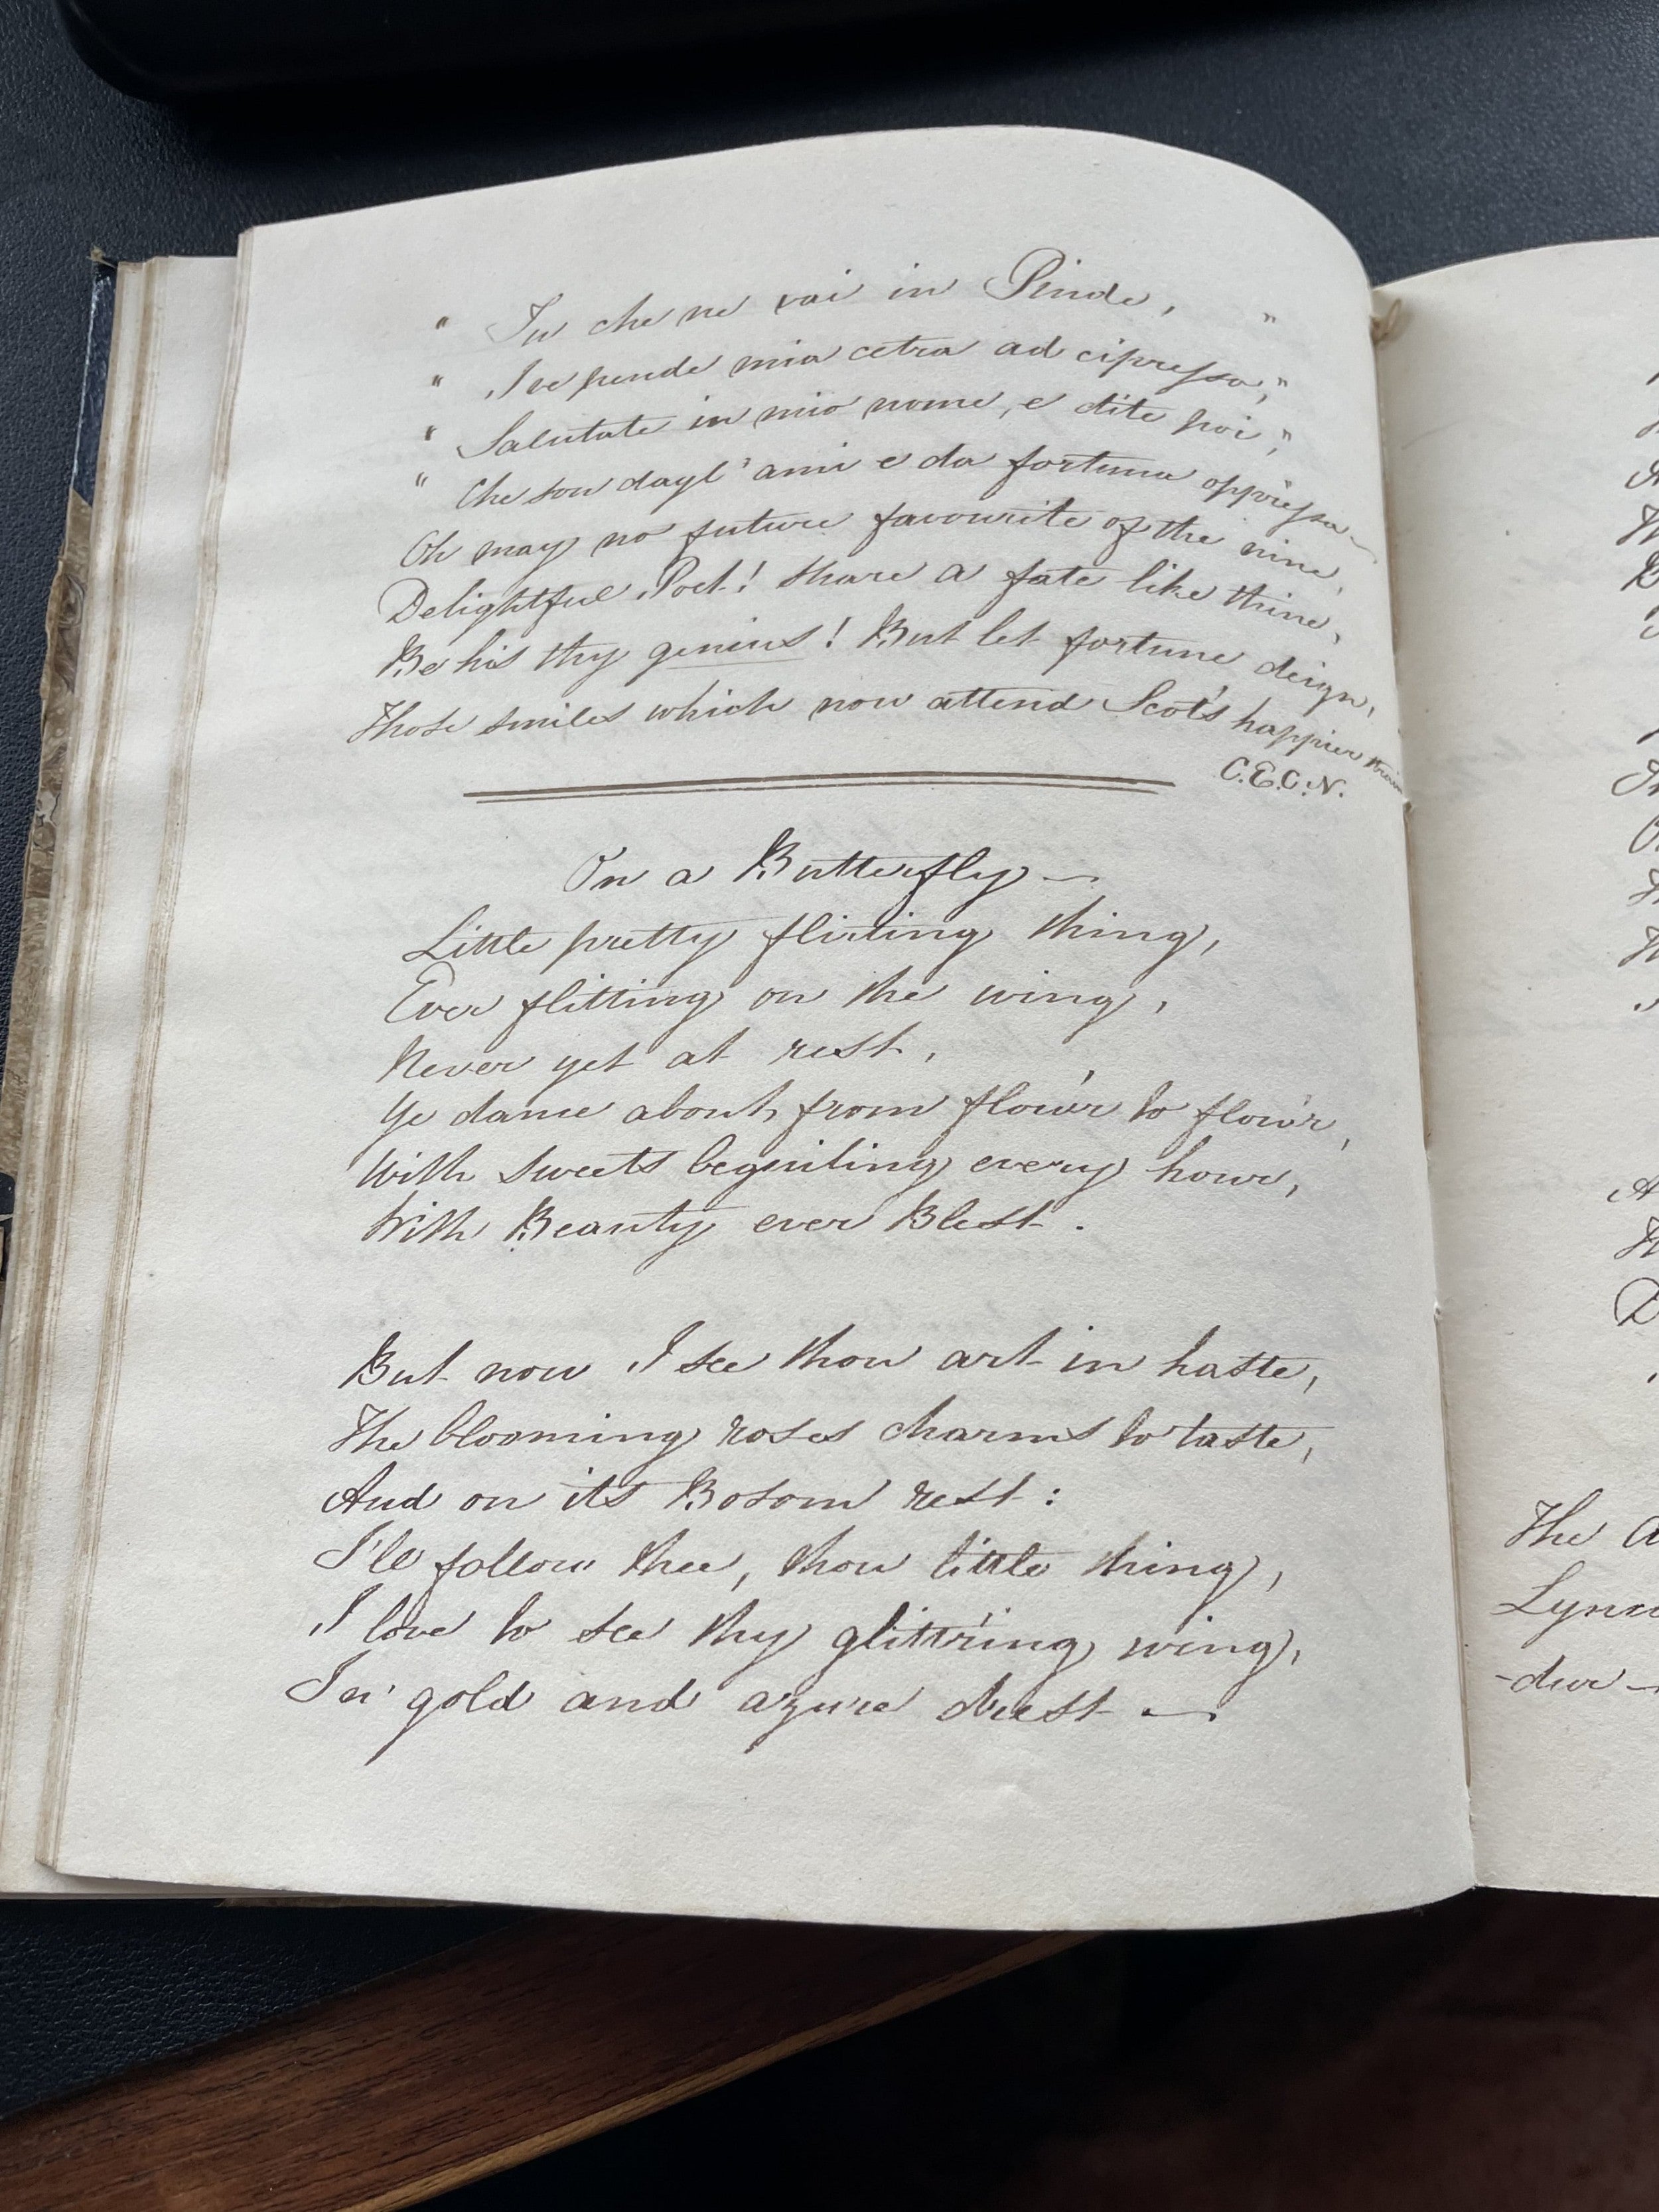 " Tu che ne vai in Pindo, "
" Ive pende mia cetra ad cipresso, "
" Salutate in mio nome, e dite poi, "
" Che son dagl' ani e da fortuna oppressa —
Oh may no future favourite of the nine,
Delightful Poet! share a fate like thine,
Be his thy genius! But let fortune deign,
Those smiles which now attend Scot's happier strain
C.E.C.N.
On a Butterfly —
Little pretty flirting thing,
Ever flitting on the wing,
Never yet at rest,
Ye dance about, from flow'r to flow'r,
With sweets beguiling every hour,
With Beauty ever Blest.
But now I see thou art in haste,
The blooming roses charms to taste,
And on its Bosom rest:
I'll follow thee, thou little thing,
I love to see thy glitt'ring wing,
In gold and azure drest —
The
Lynn
-dur —